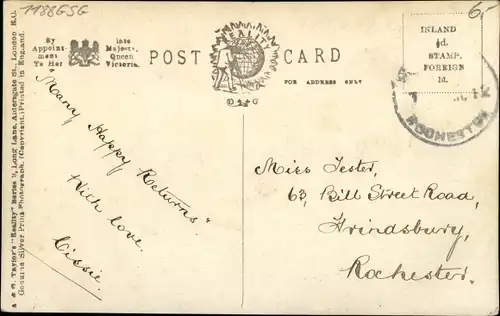 1188GSG
6.
By
Appoint-
ment
To Her
late
Majesty,
Queen
Victoria.
POST CARD
REALITY
FOR ADDRESS ONLY
INLAND
½d.
STAMP.
FOREIGN
1d.
ROCHESTER
A. & G. Taylor's "Reality" Series ½, Long Lane, Aldersgate St., London E.C.
Genuine Silver Print Photograph. (Copyright.) Printed in England.
"Many Happy Returns."
With love.
Cissie.
Miss Jester,
63, Bill Street Road,
Frindsbury,
Rochester.